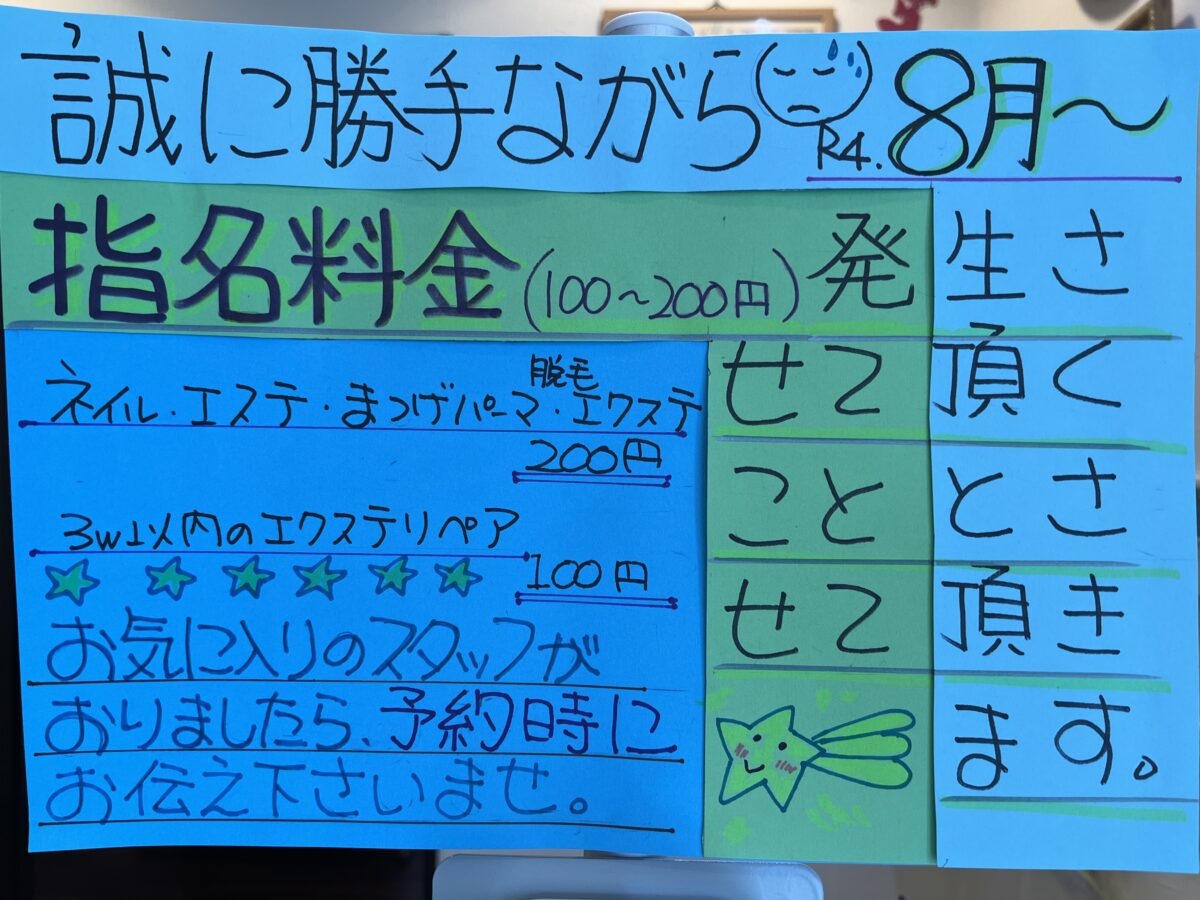 誠に勝手ながら R4.8月～
指名料金(100～200円)発生さ
せて頂く
こととさ
せて頂き
ます。
脱毛
ネイル・エステ・まつげパーマ・エクステ
200円
3w以内のエクステリペア
100円
お気に入りのスタッフが
おりましたら、予約時に
お伝え下さいませ。